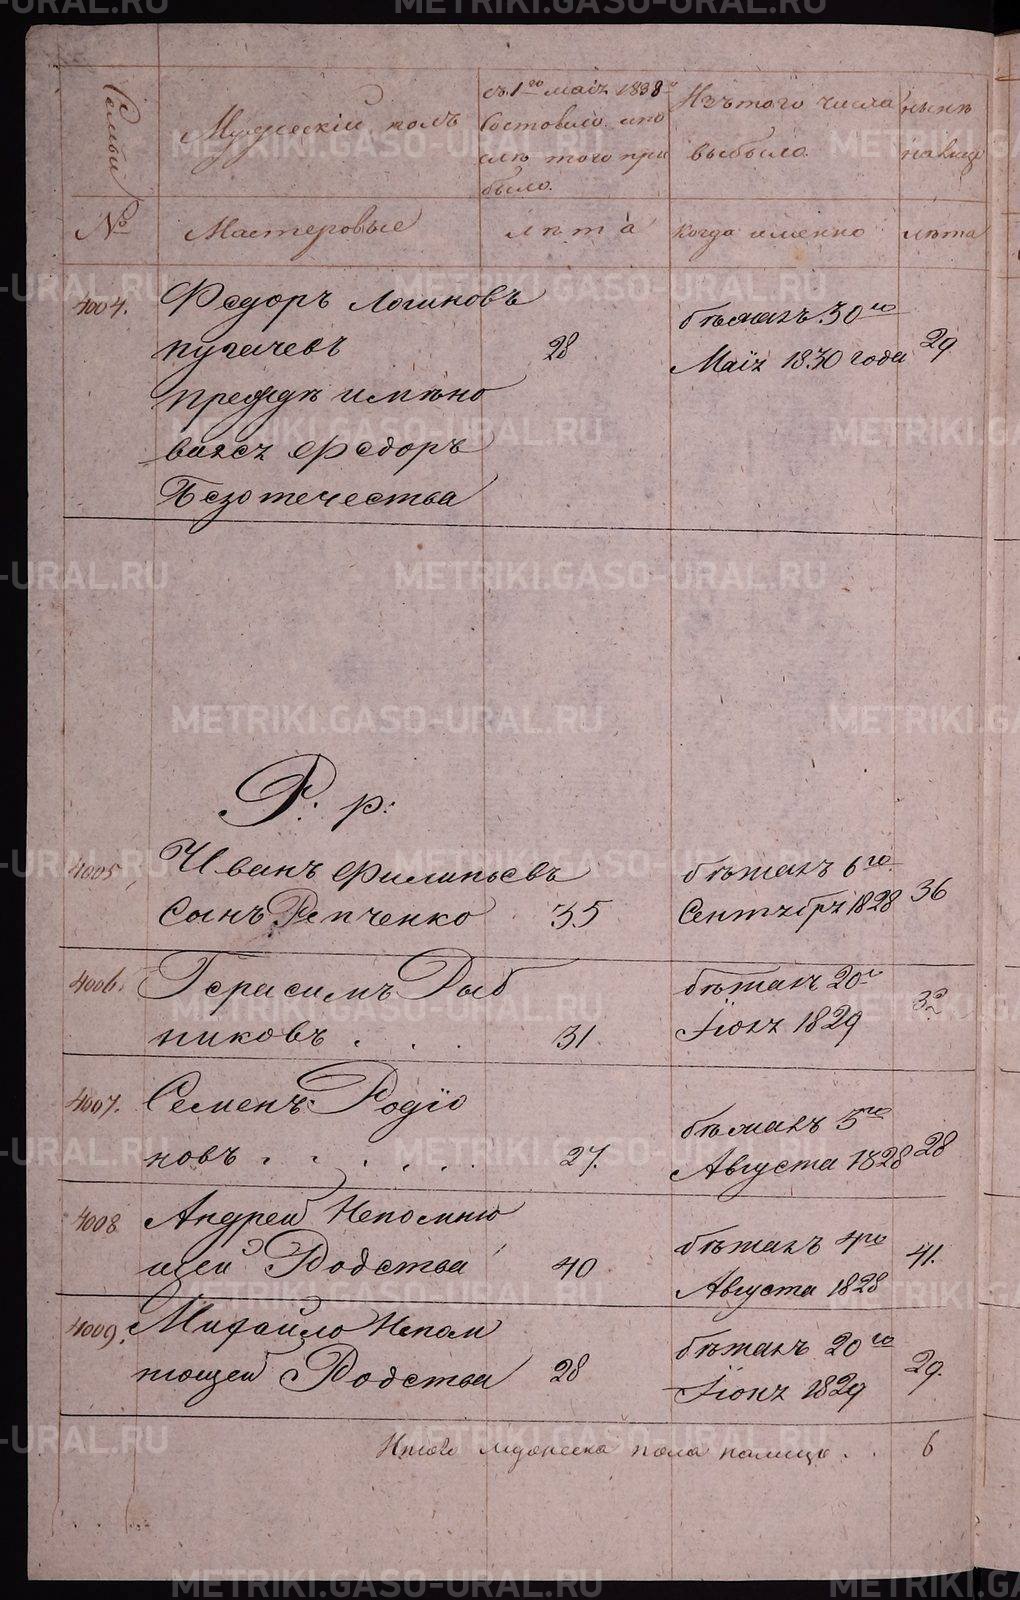 Семьи
Мужескій полъ
съ 1го маія 1838го
состовило и по
слѣ того при
было.
Изъ того числа
выбыло
нынѣ
на лицо
№
Мастеровые
лѣта
когда именно
лѣта
4004.
Федоръ Логиновъ
Пугачевъ
прежде имѣно
вался Федоръ
Безотечества
28
бѣжалъ 30го
Маія 1830 года
29
Р: р:
4005
Иванъ Филипьевъ
Сынъ Репченко
35
бѣжалъ 6го
Сентября 1828
36
4006.
Герасимъ Рыб
никовъ . . .
31
бѣжалъ 20г
Іюля 1829
32
4007.
Семенъ Родіо
новъ . . . . . .
27.
бѣжалъ 5го
Августа 1828
28
4008
Андрей Непомню
щей Родства
40
бѣжалъ 4го
Августа 1828
41.
4009.
Михайло Непом
нющей Родства
28
бѣжалъ 20го
Іюня 1829
29.
Итого мужеска пола на лицо . .
6
METRIKI.GASO-URAL.RU